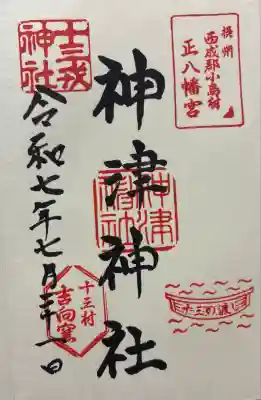 摂州
西成郡小島村
正八幡宮
十三戎
神社
神津神社
神津
神社
令和七年七月三十一日
十三村
吉向窯
十三の渡